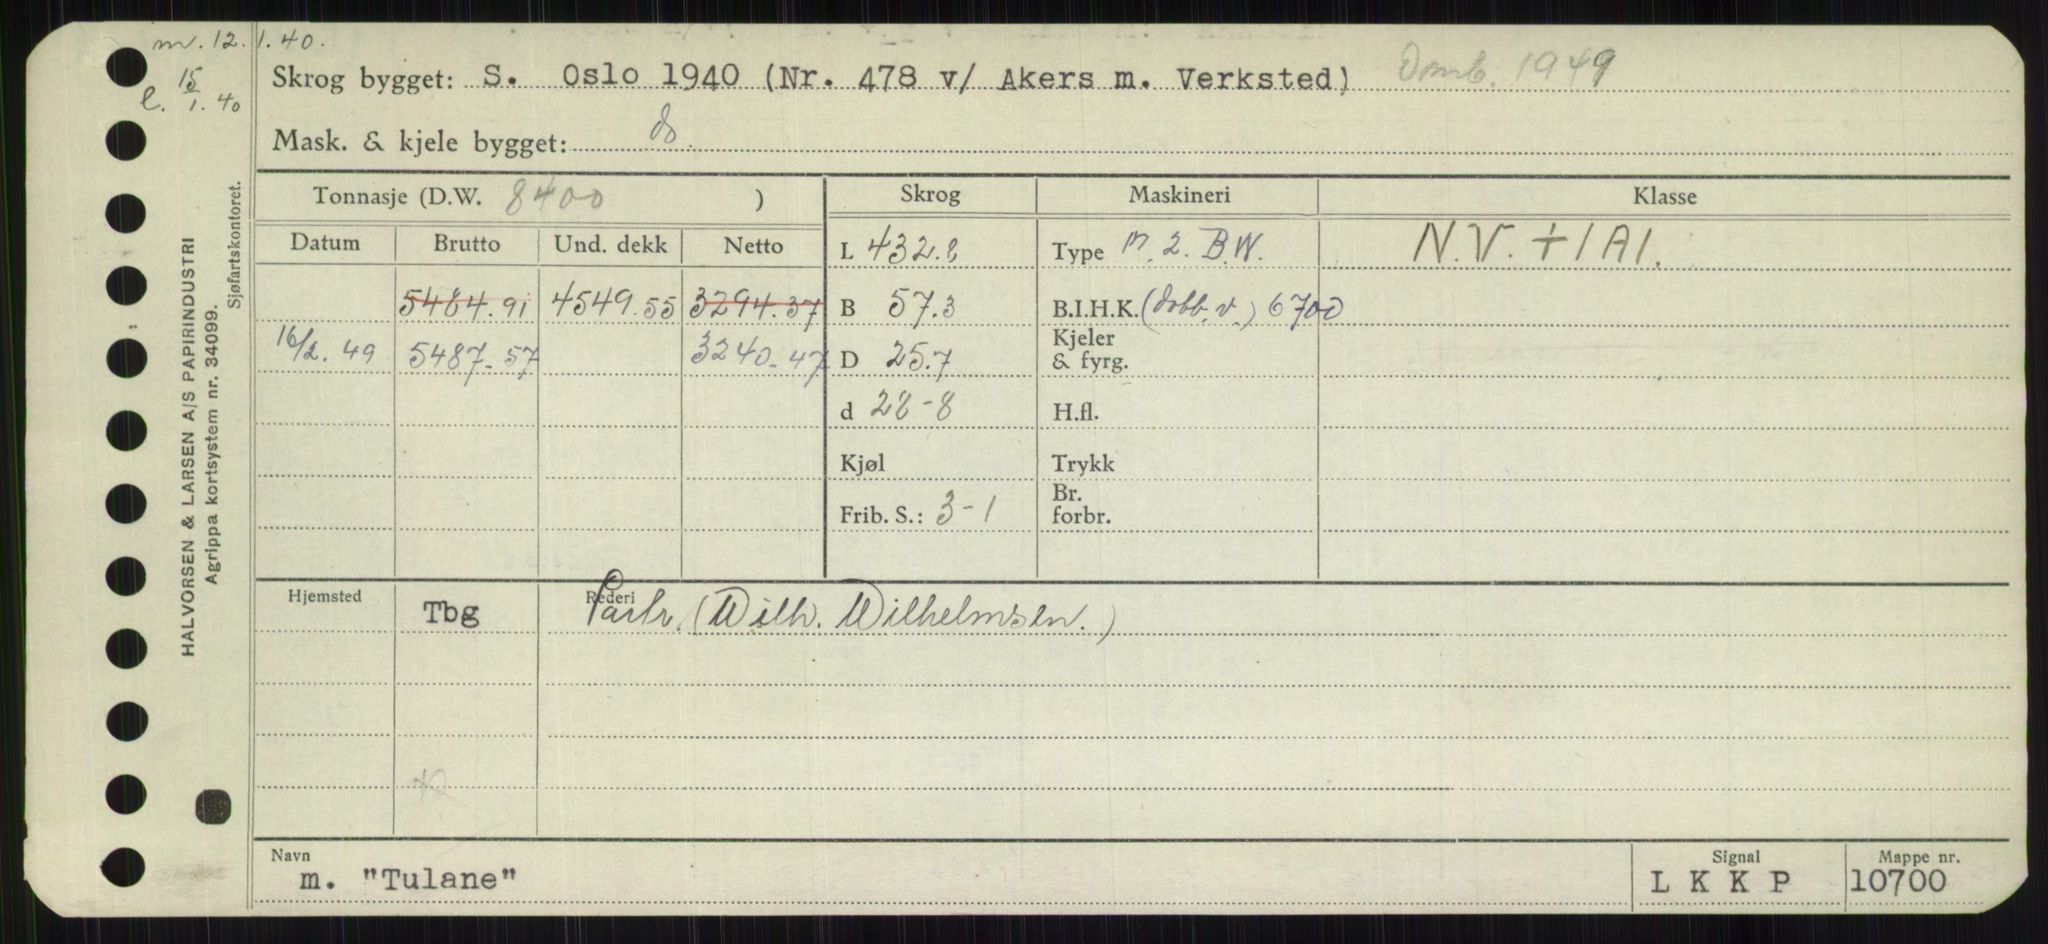 m. 12. 1. 40.
l. 15/1. 40
Skrog bygget: S. Oslo 1940 (Nr. 478 v/ Akers m. Verksted) Omb. 1949
Mask. & kjele bygget: do.
Tonnasje (D.W. 8400 )
Skrog
Maskineri
Klasse
Datum Brutto Und. dekk Netto
L 432.8
Type m. 2. B.W.
N.V. + 1A1.
5484.91 4549.55 3294.37
B 57.3
B.I.H.K. (dobb. v.) 6700
16/2. 49 5487.57 3240.47
D 25.7
Kjeler
& fyrg.
d 28-8
H.fl.
Kjøl
Trykk
Frib. S.: 3-1
Br.
forbr.
Hjemsted Tbg
Rederi Partr. (Wilh. Wilhelmsen.)
Navn
m. "Tulane"
Signal
L K K P
Mappe nr.
10700
HALVORSEN & LARSEN A/S PAPIRINDUSTRI
Agrippa kortsystem nr. 34099.
Sjøfartskontoret.